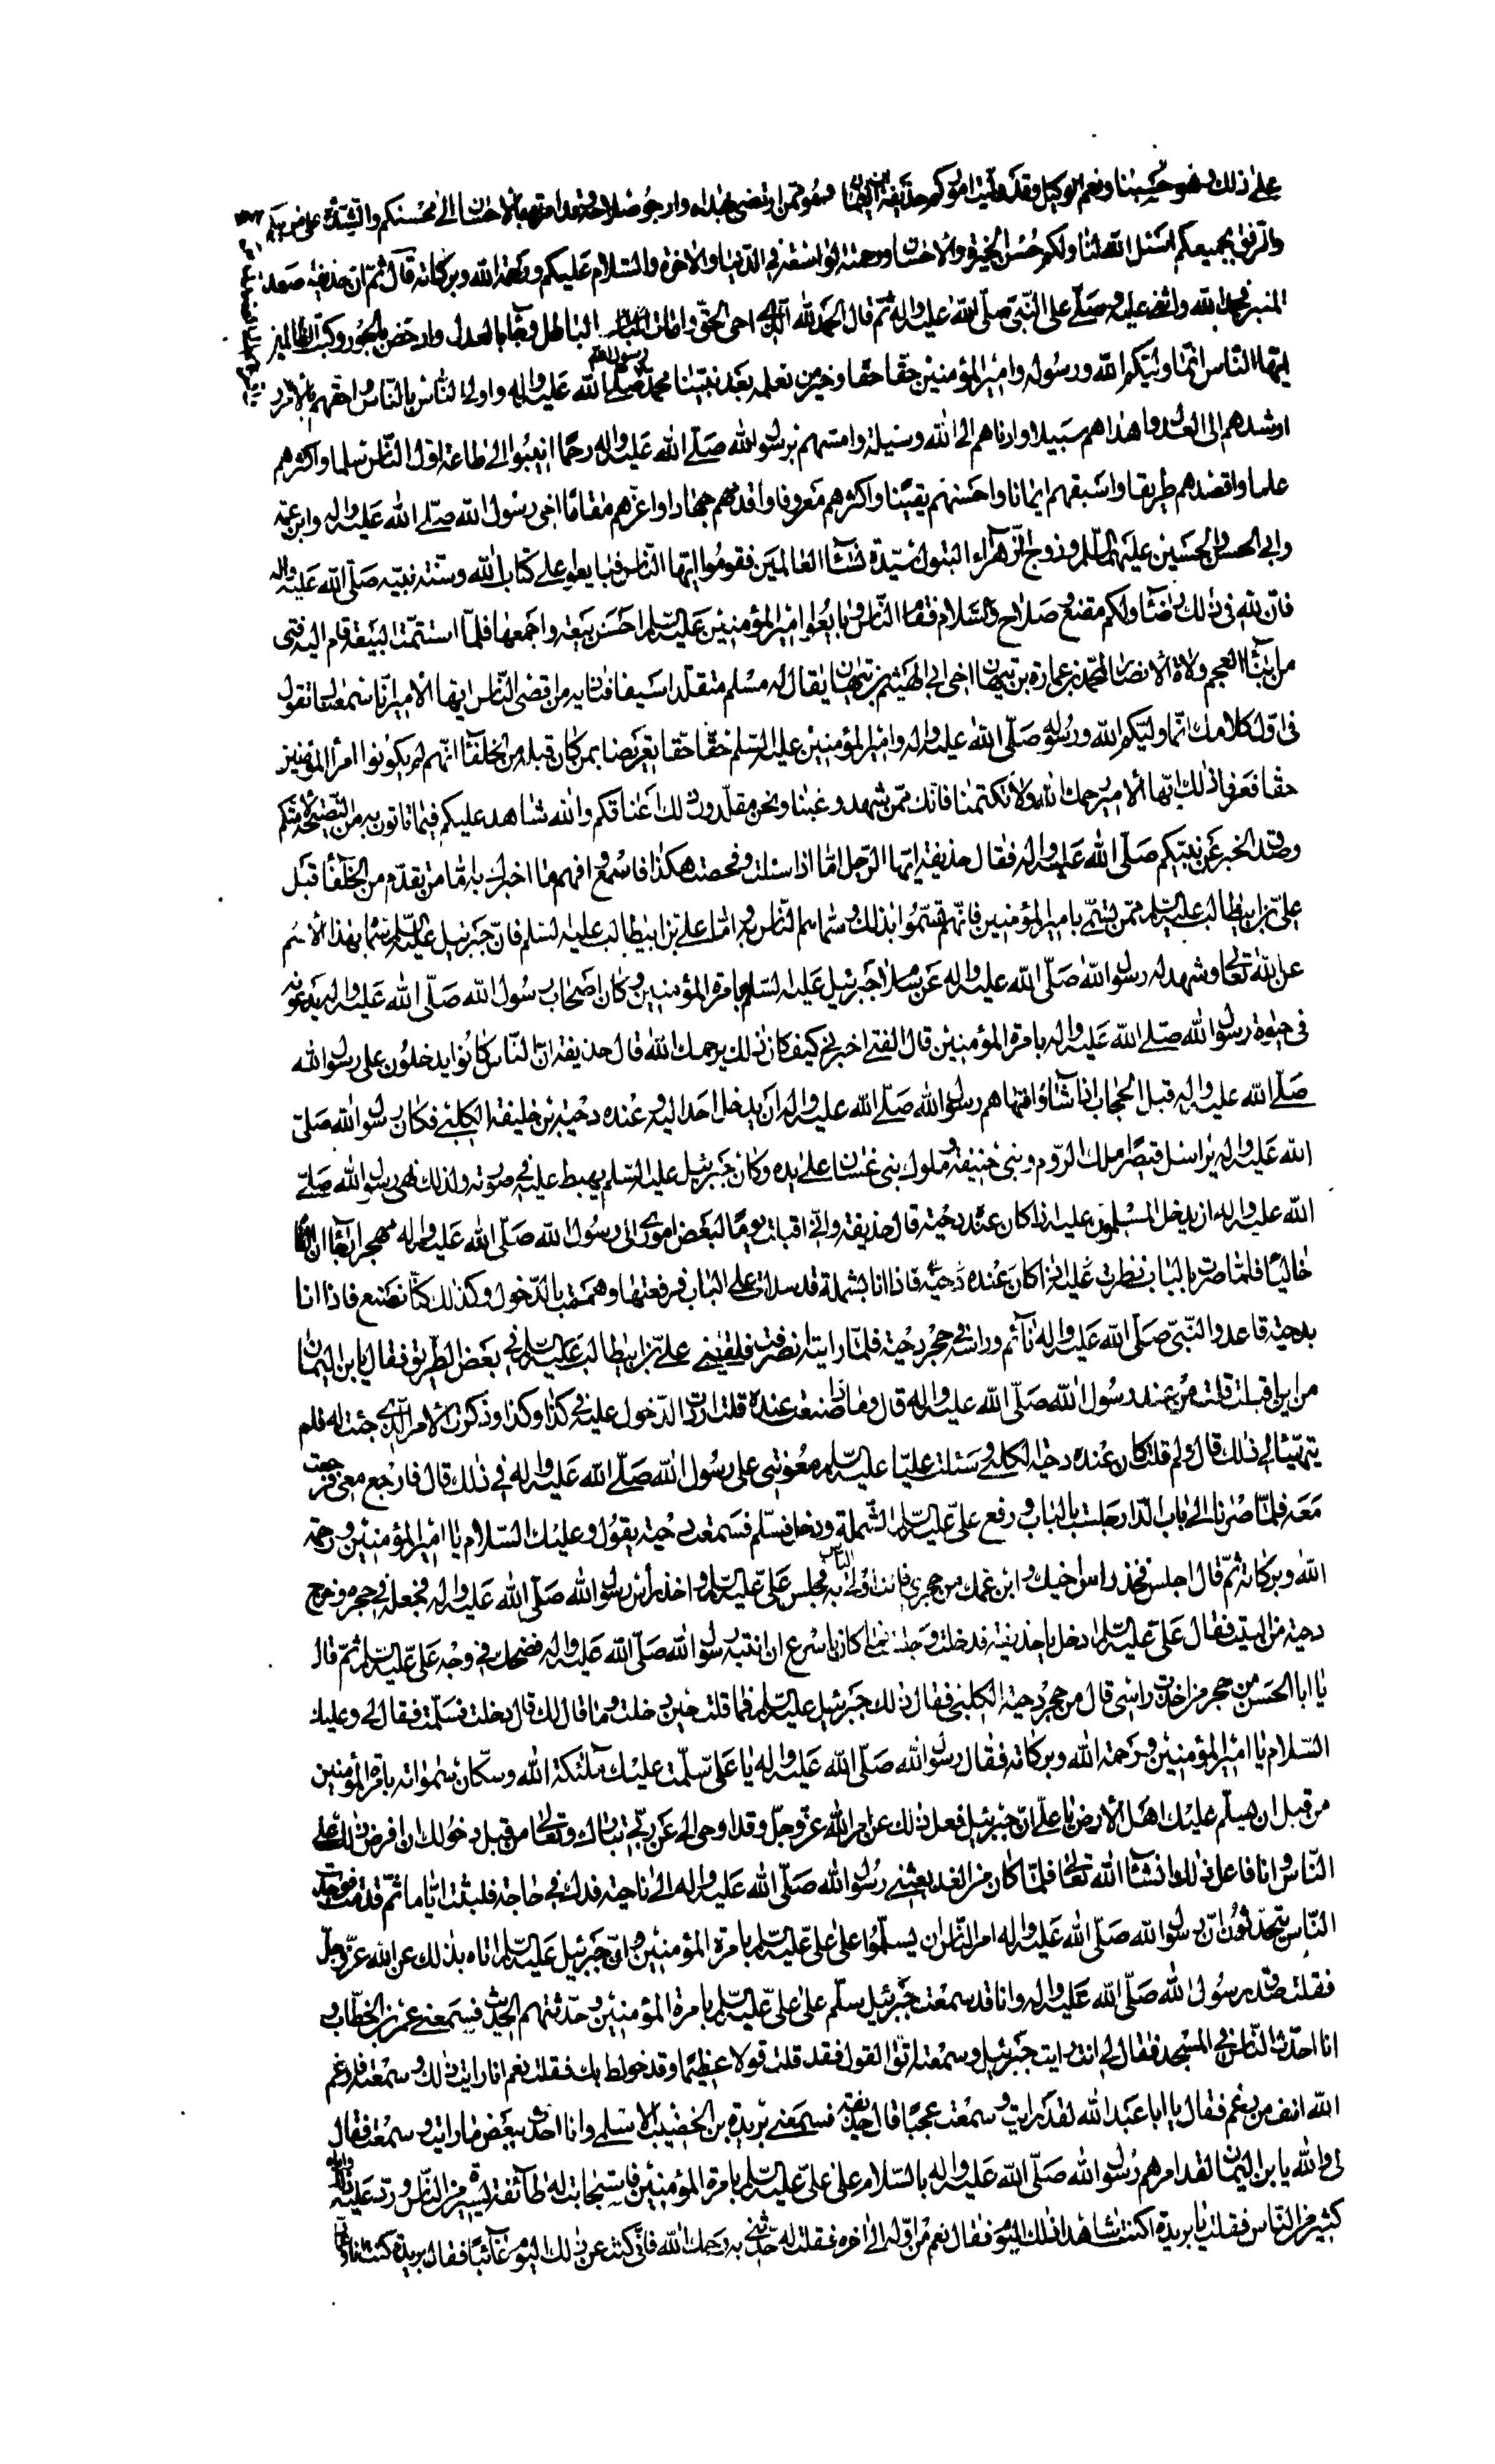 على ذلك فهو حسبنا ونعم الوكيل وقد وليت اموركم حذيفة بن اليمان وهو ممن ارتضى بهداه وارجو صلاحه وقد امرته بالاحسان الى محسنكم والشدة على مريبكم
والرفق بجميعكم اسئل الله لنا ولكم حسن الخيرة والاحسان ورحمته الواسعة في الدنيا والاخرة والسلام عليكم ورحمة الله وبركاته قال ثم ان حذيفة صعد
المنبر فحمد الله واثنى عليه وصلى على النبي صلى الله عليه واله ثم قال الحمد لله الذي احيى الحق وامات الباطل وجاء بالعدل وادحض الجور وكبت الظالمين
ايها الناس انما وليكم الله ورسوله وامير المؤمنين حقا حقا وخير من نعلمه بعد نبينا محمد رسول الله صلى الله عليه واله واولى الناس بالناس واحقهم بالامر و
ارشدهم الى العدل واهداهم سبيلا وادناهم الى الله وسيلة وامسهم برسول الله صلى الله عليه واله رحما انيبوا الى طاعة اول الناس سلما واكثرهم
علما واقصدهم طريقا واسبقهم ايمانا واحسنهم يقينا واكثرهم معروفا واقدمهم جهادا واعزهم مقاما اخي رسول الله صلى الله عليه واله وابن عمه
وابي الحسن والحسين عليهما السلم وزوج الزهراء البتول سيدة نساء العالمين فقوموا ايها الناس فبايعوا على كتاب الله وسنة نبيه صلى الله عليه واله
فان لله في ذلك رضا ولكم مقنع وصلاح والسلام فقام الناس وبايعوا امير المؤمنين عليه السلم احسن بيعة واجمعها فلما استتمت البيعة قام اليه فتى
من ابناء العجم وولاة الانصار لمحمد بن عمارة بن تيهان اخي ابي الهيثم بن تيهان يقال له مسلم متقلدا سيفا فناداه من اقصى الناس ايها الامير انا سمعناك تقول
في اول كلامك انما وليكم الله ورسوله صلى الله عليه واله وامير المؤمنين عليه السلم حقا حقا تعريضا بمن كان قبله من الخلفاء انهم لم يكونوا امراء المؤمنين
حقا فعرفنا ذلك ايها الامير رحمك الله ولا تكتمنا فانك ممن شهد وغبنا ونحن مقلدون ذلك اعناقكم والله شاهد عليكم فيما تاتون به من النصيحة لامتكم
وصدق الخبر عن نبيكم صلى الله عليه واله فقال حذيفة ايها الرجل اما اذا سئلت وفحصت هكذا فاسمع وافهم ما اخبرك به اما من تقدم من الخلفاء قبل
علي بن ابيطالب عليه السلم ممن تسمى بامير المؤمنين فانهم تسموا بذلك وسماهم الناس به واما علي بن ابيطالب عليه السلم فان جبرئيل عليه السلم سماه بهذا الاسم
عن الله تعالى وشهد له رسول الله صلى الله عليه واله عن سلام جبرئيل عليه السلم بامرة المؤمنين وكان اصحاب رسول الله صلى الله عليه واله يدعونه
في حيوة رسول الله صلى الله عليه واله بامرة المؤمنين قال الفتى اخبرني كيف كان ذلك يرحمك الله قال حذيفة ان الناس كانوا يدخلون على رسول الله
صلى الله عليه واله قبل الحجاب اذا شاؤا فنهاهم رسول الله صلى الله عليه واله ان يدخل احد اليه وعنده دحية بن خليفة الكلبي فكان رسول الله صلى
الله عليه واله يراسل قيصرا ملك الروم وبني حنيفة وملوك بني غسان على يده وكان جبرئيل عليه السلم يهبط عليه في صورته ولذلك نهى رسول الله صلى
الله عليه واله ان يدخل المسلمون عليه اذا كان عنده دحية قال حذيفة واني اقبلت يوما لبعض اموري الى رسول الله صلى الله عليه واله مهجرا رجاء ان القاه
خاليا فلما صرت بالباب نظرت عليه اذا كان عنده دحية فاذا انا بشملة قد سدلت على الباب فرفعتها وهممت بالدخول وكذلك كنا نصنع فاذا انا
بدحية قاعد والنبي صلى الله عليه واله نائم وراسه في حجر دحية فلما رايته انصرفت فلقيني علي بن ابيطالب عليه السلم في بعض الطريق فقال يا بن اليمان
من اين اقبلت قلت من عند رسول الله صلى الله عليه واله قال وماذا صنعت عنده قلت اردت الدخول عليه في كذا وكذا وذكرت الامر الذي جئت له فلم
يتهيئا لي ذلك قال ولم قلت كان عنده دحية الكلبي وسئلت عليا عليه السلم معونتي على رسول الله صلى الله عليه واله في ذلك قال فارجع معي فرجعت
معه فلما صرنا الى باب الدار جلست بالباب ورفع علي عليه السلم الشملة ودخل فسلم فسمعت دحية يقول وعليك السلام يا امير المؤمنين ورحمة
الله وبركاته ثم قال اجلس فخذ راس اخيك وابن عمك من حجري فانت اولى الناس به فجلس علي عليه السلم واخذ راس رسول الله صلى الله عليه واله فجعله في حجره وخرج
دحية من البيت فقال علي عليه السلم ادخل يا حذيفة فدخلت وجلست فما كان باسرع ان انتبه رسول الله صلى الله عليه واله فضحك في وجه علي عليه السلم ثم قال
يا ابا الحسن من حجر من اخذت راسي قال من حجر دحية الكلبي فقال ذلك جبرئيل عليه السلم فما قلت حين دخلت وما قال لك قال دخلت فسلمت فقال لي وعليك
السلام يا امير المؤمنين ورحمة الله وبركاته فقال رسول الله صلى الله عليه واله يا علي سلمت عليك ملئكة الله وسكان سمواته بامرة المؤمنين
من قبل ان يسلم عليك اهل الارض يا علي ان جبرئيل فعل ذلك عن امر الله عز وجل وقد اوحى الي عن ربي تبارك وتعالى من قبل دخولك ان افرض ذلك على
الناس وانا فاعل ذلك انشاء الله تعالى فلما كان من الغد بعثني رسول الله صلى الله عليه واله الى ناحية فدك في حاجة فلبثت اياما ثم قدمت فوجدت
الناس يتحدثون ان رسول الله صلى الله عليه واله امر الناس ان يسلموا على علي عليه السلم بامرة المؤمنين وان جبرئيل عليه السلم اتاه بذلك عن الله عز وجل
فقلت صدق رسول الله صلى الله عليه واله وانا قد سمعت جبرئيل سلم على علي عليه السلم بامرة المؤمنين وحدثتهم الحديث فسمعني عمر بن الخطاب و
انا احدث الناس في المسجد فقال لي انت رايت جبرئيل وسمعته اتق القول فقد قلت قولا عظيما وقد خولط بك فقلت نعم انا رايت ذلك وسمعته فارغم
الله انف من رغم فقال يا ابا عبد الله لقد رايت وسمعت عجبا قال حذيفة فسمعني بريدة بن الخضيب الاسلمي وانا احدث ببعض ما رايت وسمعت فقال
لي والله يا بن اليمان لقد امرهم رسول الله صلى الله عليه واله بالسلام على علي عليه السلم بامرة المؤمنين فاستجابت له طائفة يسيرة من الناس ورد عليه ذلك واباه
كثير من الناس فقلت يا بريدة اكنت شاهدا ذلك اليوم فقال نعم من اوله الى اخره فقلت له حدثني به رحمك الله فاني كنت عن ذلك اليوم غائبا فقال بريدة كنت انا وعمار